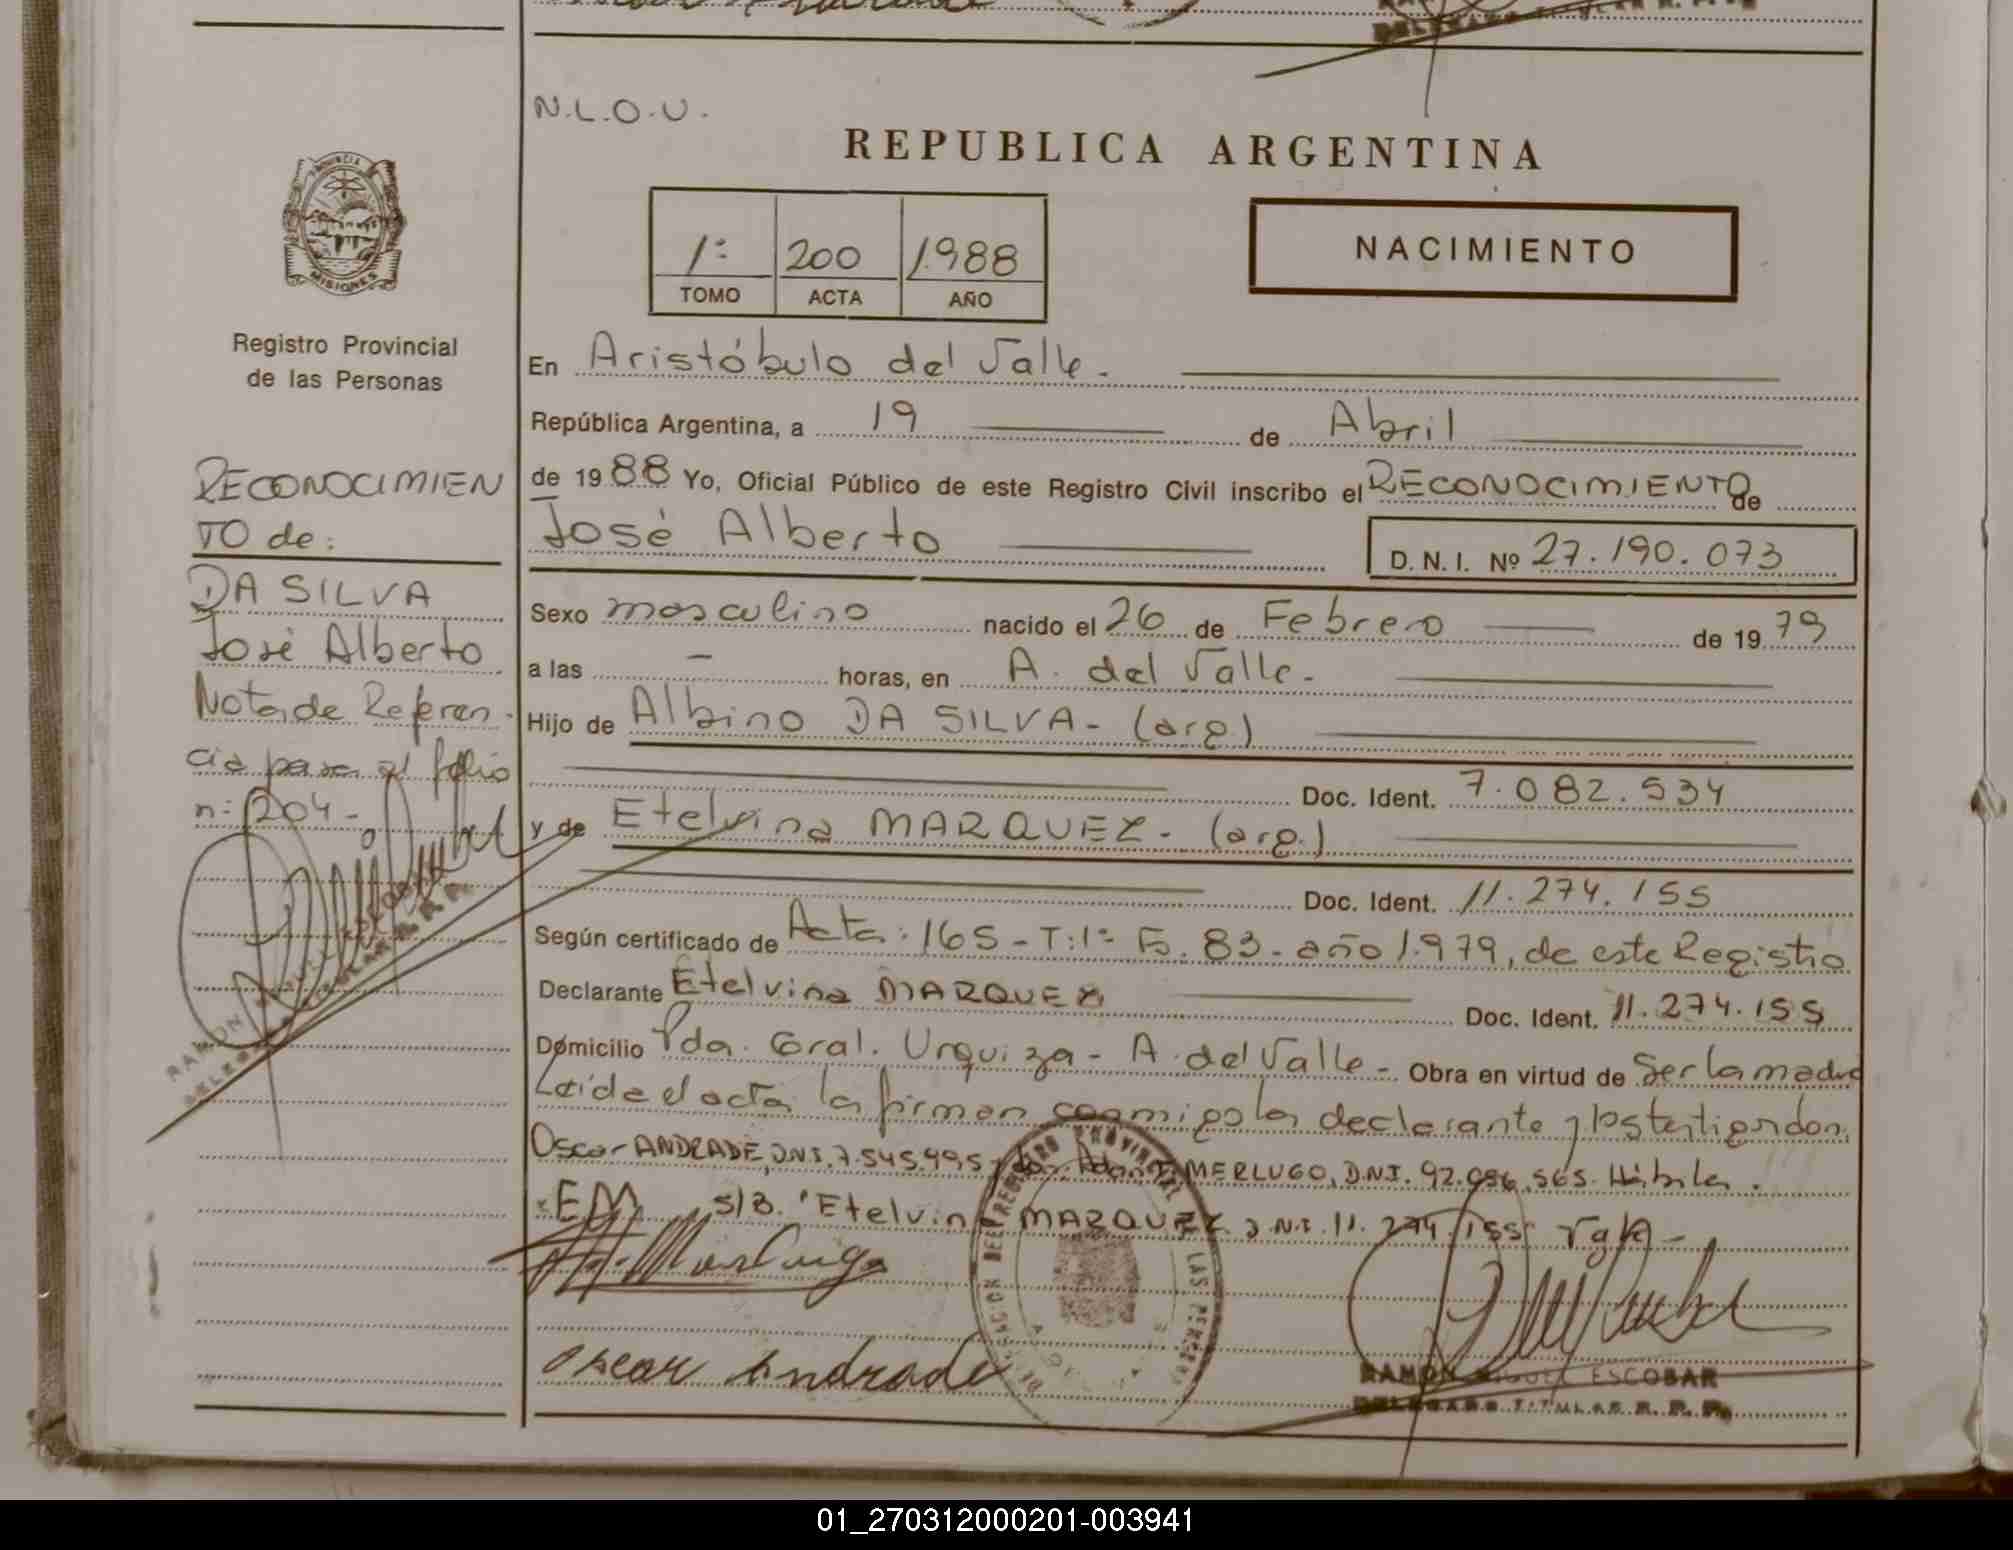 N.L.O.U.
REPUBLICA ARGENTINA
PROVINCIA
MISIONES
1º 200 1.988
TOMO ACTA AÑO
NACIMIENTO
Registro Provincial
de las Personas
RECONOCIMIEN
TO de:
DA SILVA
José Alberto
Nota de Referen-
cia pasa al folio
nº 204-
En Aristóbulo del Valle.
República Argentina, a 19 de Abril
de 1988 Yo, Oficial Público de este Registro Civil inscribo el RECONOCIMIENTO de
José Alberto D. N. I. Nº 27.190.073
Sexo masculino nacido el 26 de Febrero de 1979
a las - horas, en A. del Valle.
Hijo de Albino DA SILVA- (arg.)
Doc. Ident. 7.082.534
y de Etelvina MARQUEZ- (arg.)
Doc. Ident. 11.274.155
Según certificado de Acta: 165- T:1º Fº. 83- año 1.979, de este Registro
Declarante Etelvina MARQUEZ Doc. Ident. 11.274.155
Domicilio Pda. Gral. Urquiza- A. del Valle- Obra en virtud de Ser la madre
Leída el acta la firman conmigo la declarante y los testigos don
Oscar ANDRADE, DNI. 7.545.995 y don MERLUGO, D.N.I. 92.056.565. Hábiles.
EM S/B. "Etelvina MARQUEZ D.N.I. 11.274.155 Vale-
Oscar Andrade
RAMON MIGUEL ESCOBAR
DELEGADO TITULAR R. P. P.
01_270312000201-003941